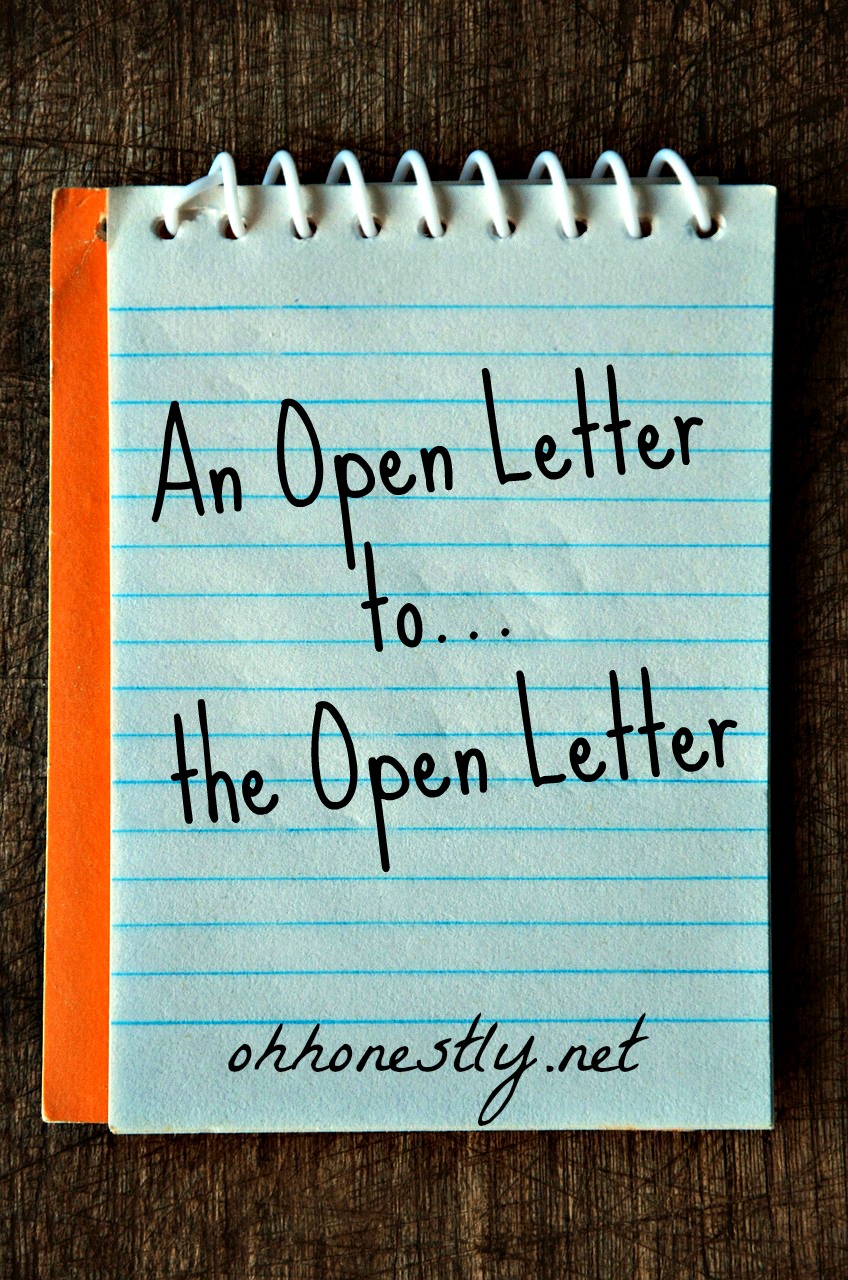 An Open Letter
to...
the Open Letter
ohhonestly.net